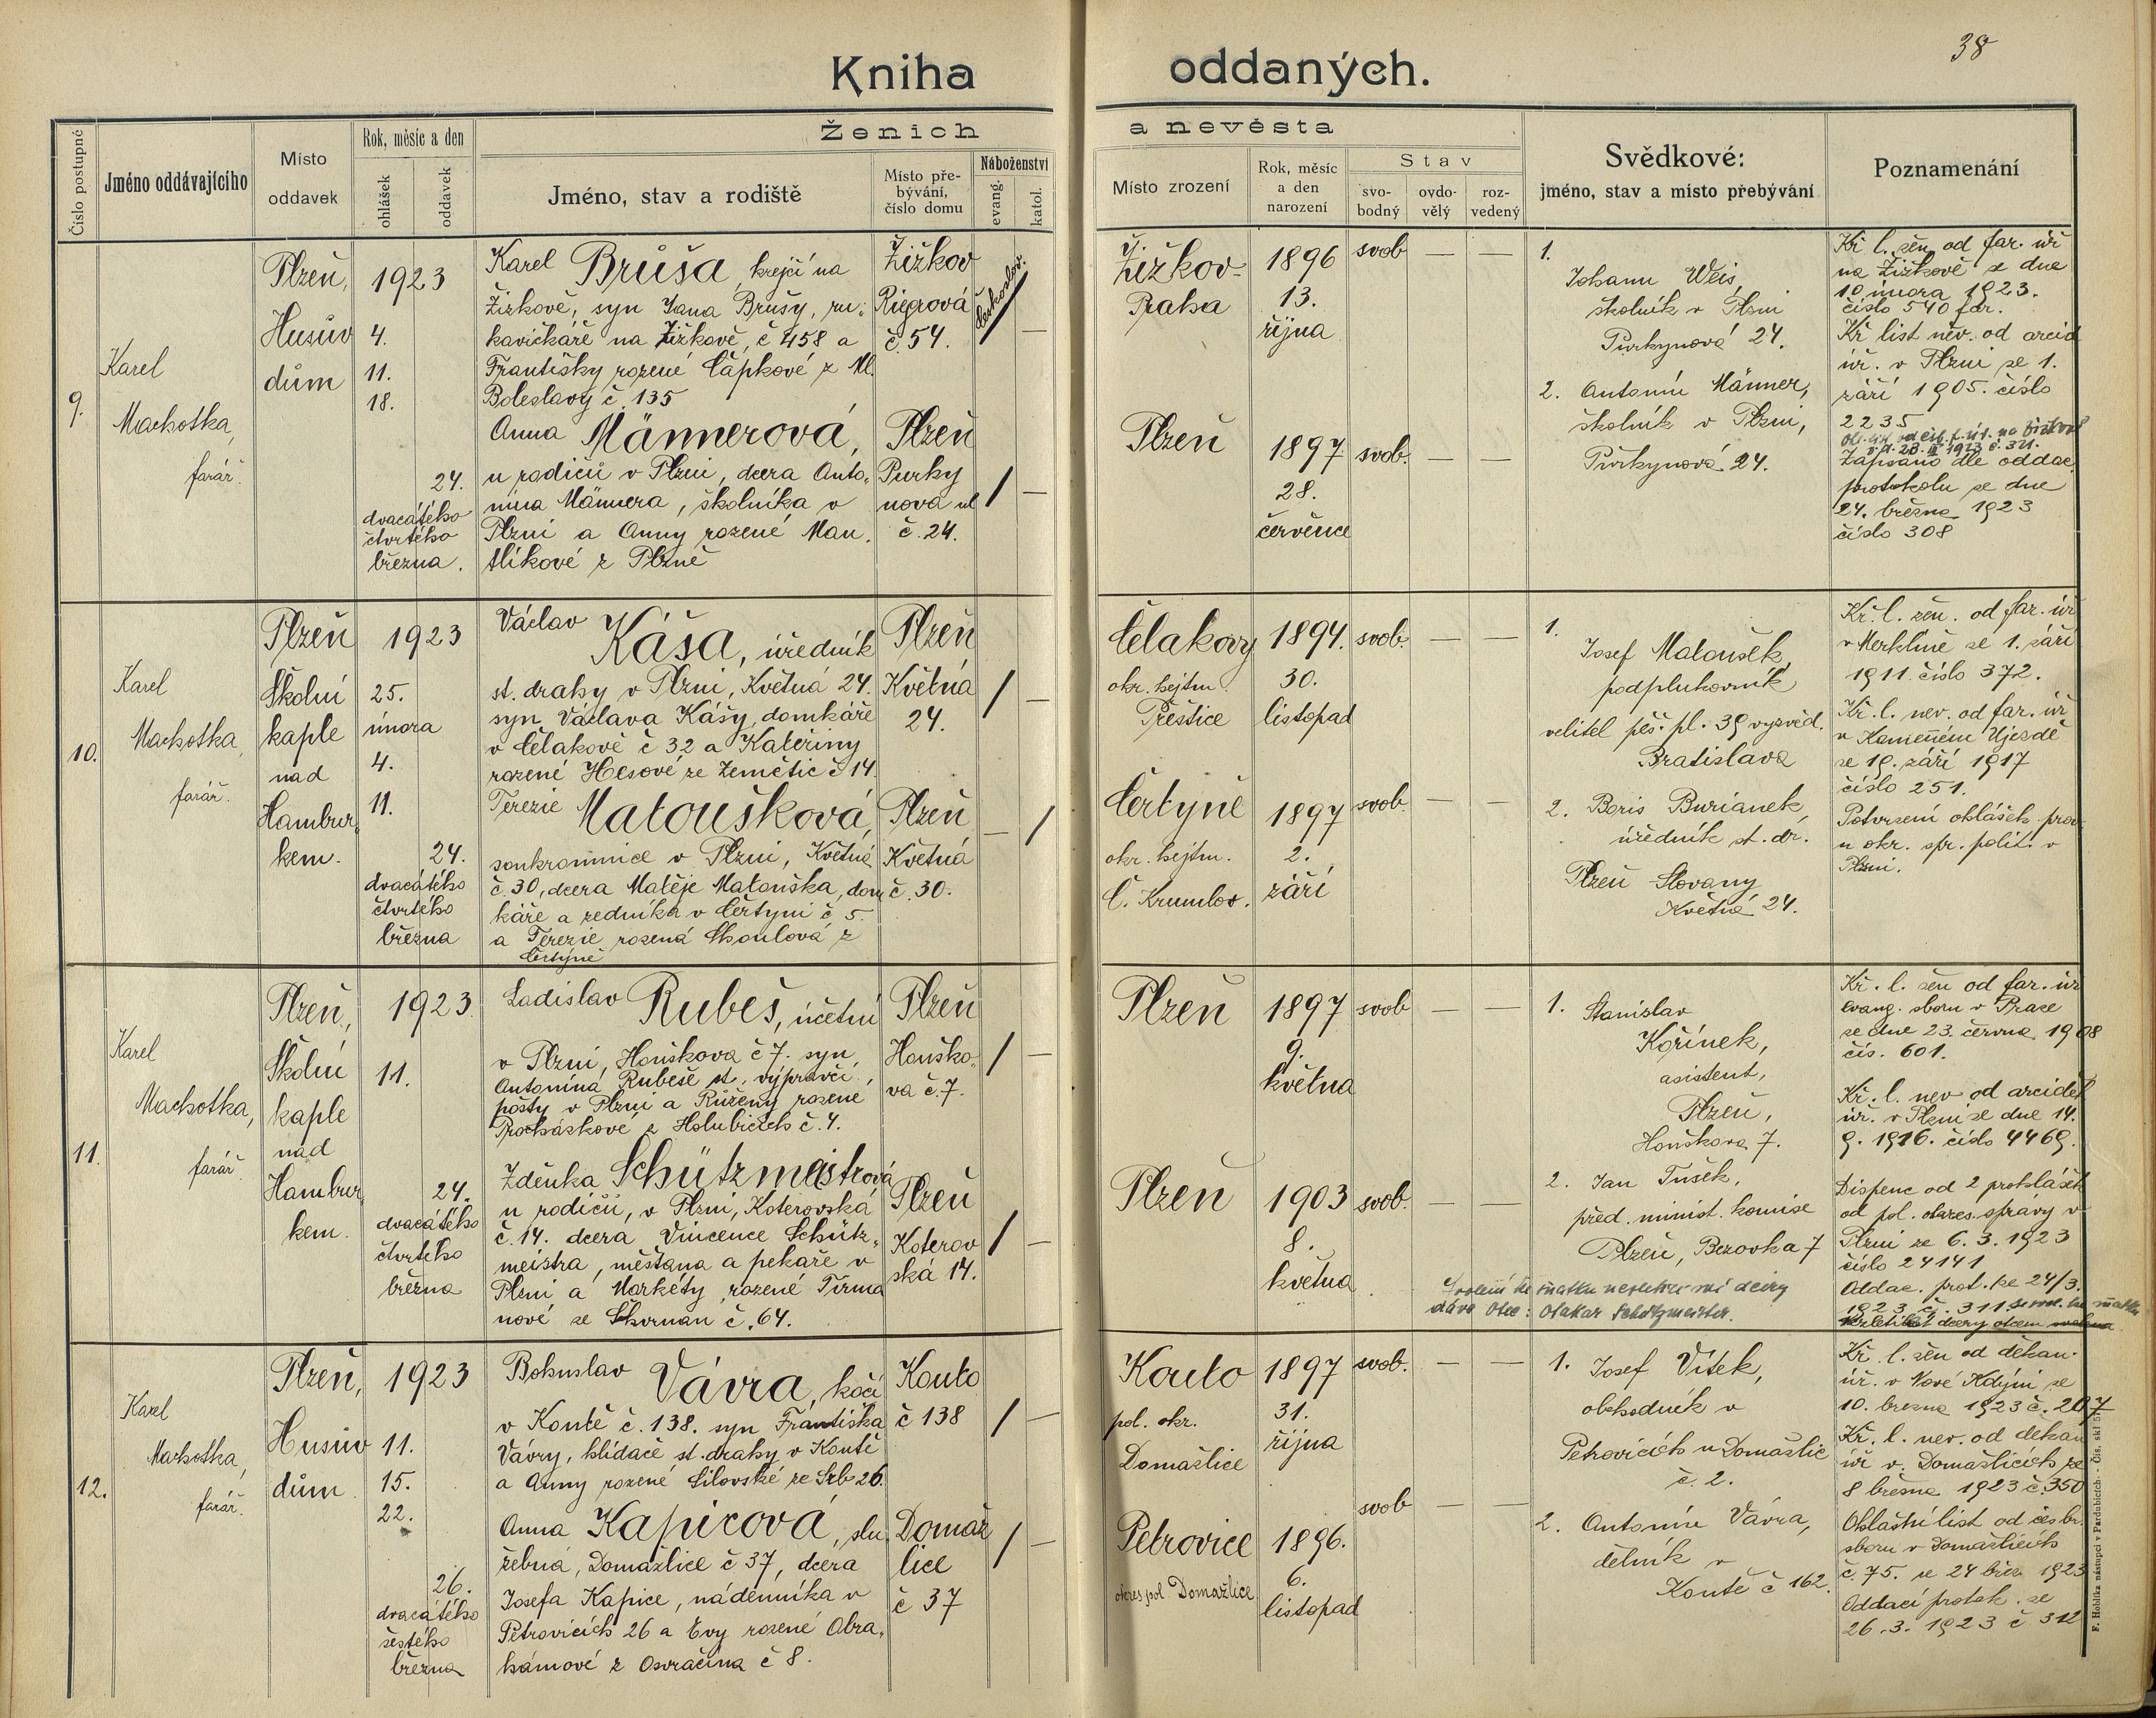 38
Kniha oddaných.
Číslo postupné
Jméno oddávajícího
Místo oddavek
Rok, měsíc a den
ohlášek
oddavek
Ženich a nevěsta
Jméno, stav a rodiště
Místo pře-
bývání,
číslo domu
Náboženství
evang.
katol.
Místo zrození
Rok, měsíc
a den
narození
Stav
svo-
bodný
ovdo-
vělý
roz-
vedený
Svědkové:
jméno, stav a místo přebývání
Poznamenání
9.
Karel
Machotka,
farář.
Plzeň,
Husův
dům
1923
4.
11.
18.
24.
dvacátého
čtvrtého
března.
Karel Brůša, krejčí na
Žižkově, syn Jana Brušy, ru-
kavičkáře na Žižkově, č 458 a
Františky rozené Čápkové z Ml.
Boleslavy č. 135
Žižkov
Riegrová
č. 54.
českoslov.
Anna Männerová,
u rodičů v Plzni, dcera Anto-
nína Männera, školníka v
Plzni a Anny rozené Man-
tlíkové z Plzně
Plzeň
Purky
nova ul
č. 24.
Žižkov-
Praha
1896
13.
října
svob — —
Plzeň
1897
28.
července
svob. — —
1.
Johann Weis,
školník v Plzni
Purkynová 24.
2. Antonín Männer,
školník v Plzni,
Purkynová 24.
Kř. l. žen. od far. úř
na Žižkově z dne
10 února 1923.
číslo 540 far.
Kř list něv. od arcid
úř. v Plzni ze 1.
září 1905. číslo
2235
Zapsáno dle oddac.
protokolu ze dne
24. března 1923
číslo 308
10.
Karel
Machotka,
farář.
Plzeň
Školní
kaple
nad
Hambur
kem.
1923
25.
února
4.
11.
24.
dvacátého
čtvrtého
března
Václav
Káša, úředník
st. dráhy v Plzni, Květná 24.
syn Václava Kášy, domkáře
v Čelakově č 32 a Kateřiny
rozené Hesové ze Zemětic č 14.
Plzeň
Květná
24.
Terezie Matoušková,
soukromnice v Plzni, Květná
č. 30, dcera Matěje Matouška, dom
káře a zedníka v Čertyni č 5.
a Terezie rozená Skoulová z
Čertyně
Plzeň
Květná
č. 30.
Čelakovy
okr. hejtm.
Přeštice
1894.
30.
listopad
svob. — —
Čertyně
okr. hejtm.
Č. Krumlov.
1897
2.
září
svob. — —
1.
Josef Matoušek,
podplukovník
velitel pěš. pl. 39 vyzvěd.
Bratislava
2. Boris Burianek,
úředník st. dr.
Plzeň Slovany
Květná 24.
Kř. l. žen. od far. úř
v Merklíně ze 1. září
1911 číslo 372.
Kř. l. nev. od far. úř
v Kamenném Újezdě
ze 19. září 1917
číslo 251.
Potvrzení ohlášek prov.
u okr. spr. polit. v
Plzni.
11.
Karel
Machotka,
farář.
Plzeň,
Školní
kaple
nad
Hambur
kem.
1923
11.
24.
dvacátého
čtvrtého
března
Ladislav Rubeš, účetní
v Plzni, Houškova č 7. syn
Antonína Rubeše st. výpravčí,
pošty v Plzni a Růženy rozené
Procházkové z Holubicích č. 4.
Plzeň
Houško-
va č. 7.
Zdeňka Schützmeistrová
u rodičů, v Plzni, Koterovská
č. 14. dcera Vincence Schütz-
meistra, měšťana a pekaře v
Plzni a Markéty rozené Tirma
nové ze Skvrňan č. 64.
Plzeň
Koterov
ská 14.
Plzeň
1897
9.
května
svob — —
Plzeň
1903
8.
května
svob. — —
1. Stanislav
Kořínek,
asistent,
Plzeň,
Houškova 7.
2. Jan Tušek,
před. minist. komise
Plzeň, Bezovka 7
Svolení ke sňatku nezletilé mé dcery
dává Otec: Otakar Schützmeister.
Kř. l. žen od far. úř
evang. sboru v Praze
ze dne 23. června 1908
čís. 601.
Kř. l. nev od arciděk
úř. v Plzni ze dne 14.
9. 1916. číslo 4469.
Dispenc od 2 prohlášek
od pol. okres. správy v
Plzni ze 6. 3. 1923
číslo 24141
Oddac. prot. ze 24/3.
1923 č. 311
12.
Karel
Machotka,
farář.
Plzeň,
Husův
dům
1923
11.
15.
22.
26.
dvacátého
šestého
března
Bohuslav Vávra, kočí
v Koutě č. 138. syn Františka
Vávry, hlídače st. dráhy v Koutě
a Anny rozené Silovské ze Srb 26.
Kouto
č 138
Anna Kapicová, slu
žebná, Domažlice č 37, dcera
Josefa Kapice, nádenníka v
Petrovicích 26 a Evy rozené Abra-
hámové z Osvračína č 8.
Domaž
lice
č 37
Kouto
pol. okr.
Domažlice
1897
31.
října
svob. — —
Petrovice
okres pol Domažlice
1896.
6.
listopad
svob — —
1. Josef Vítek,
obchodník v
Petrovicích u Domažlic
č. 2.
2. Antonín Vávra,
dělník v
Koutě č 162.
Kř. l. žen od děkan.
úř. v Nové Kdyni ze
10. března 1923 č. 207
Kř. l. nev. od děkan
úř v. Domažlicích ze
8 března 1923 č. 350
Ohlašní list od čes br.
sboru v Domažlicích
č. 75. ze 24 břez 1923
Oddací protok. ze
26. 3. 1923 č 312
F. Hoblíka nástupci v Pardubicích